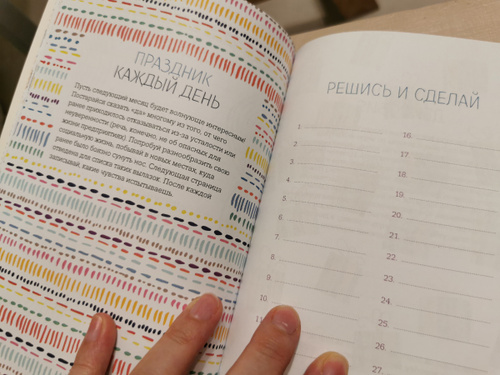 ПРАЗДНИК
КАЖДЫЙ ДЕНЬ
Пусть следующий месяц будет волнующе интересным!
Постарайся сказать «да» многому из того, от чего
ранее приходилось отказываться из-за усталости или
неуверенности (речь, конечно, не об опасных для
жизни предприятиях). Попробуй разнообразить свою
социальную жизнь, побывай в новых местах, куда
ранее было боязно сунуть нос. Следующая страница
отведена для списка таких вылазок. После каждой
записывай, какие чувства испытываешь.
РЕШИСЬ И СДЕЛАЙ
1.
2.
3.
4.
5.
6.
7.
8.
9.
10.
11
16.
17.
18.
19.
20.
21.
22.
23.
24.
25.
26.
27.